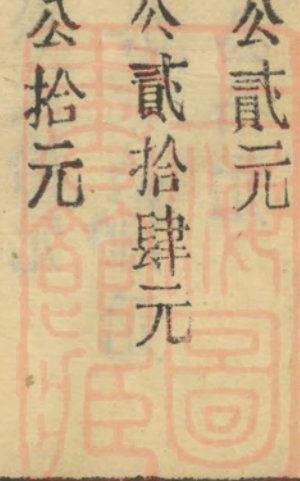 公貳元
公貳拾肆元
公拾元